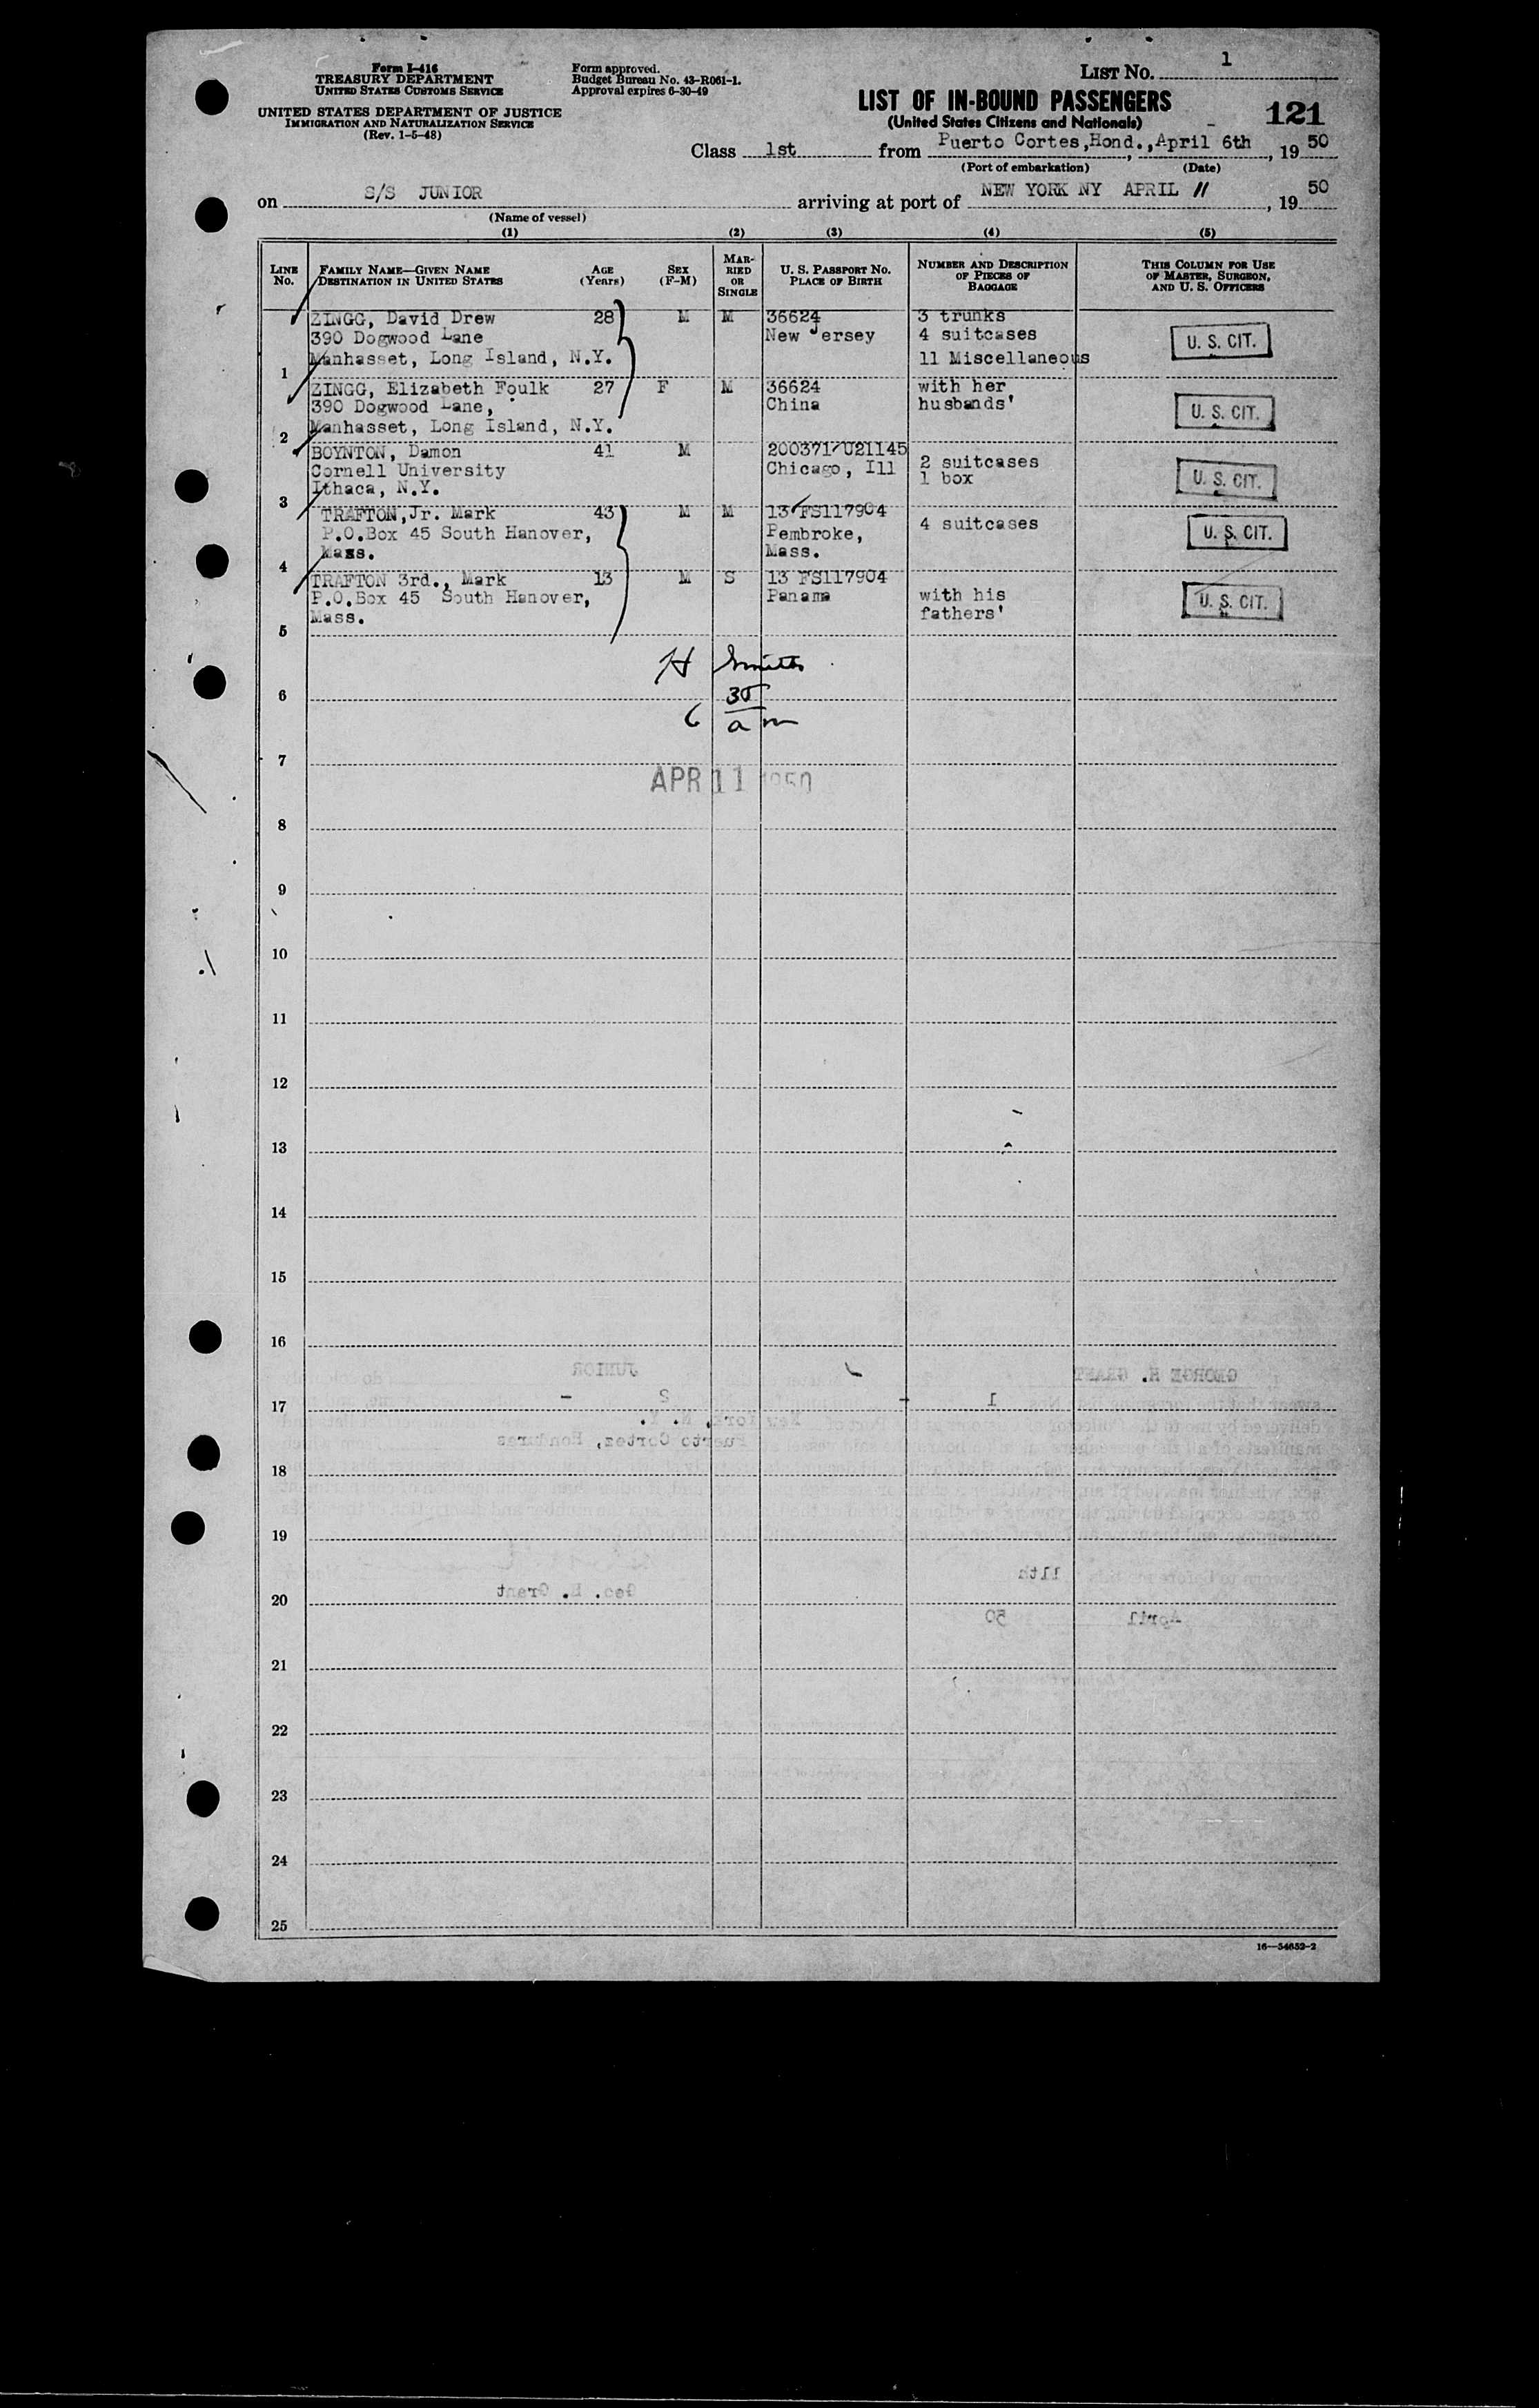 Form I-416
TREASURY DEPARTMENT
UNITED STATES CUSTOMS SERVICE
UNITED STATES DEPARTMENT OF JUSTICE
IMMIGRATION AND NATURALIZATION SERVICE
(Rev. 1-5-48)
Form approved.
Budget Bureau No. 43-R061-1.
Approval expires 6-30-49
LIST NO. 1
LIST OF IN-BOUND PASSENGERS
(United States Citizens and Nationals)
121
Class 1st from Puerto Cortes, Hond., April 6th, 19 50
(Port of embarkation) (Date)
on S/S JUNIOR arriving at port of NEW YORK NY APRIL 11, 19 50
(Name of vessel)
(1) (2) (3) (4) (5)
LINE NO. FAMILY NAME—GIVEN NAME DESTINATION IN UNITED STATES AGE (Years) SEX (F-M) MARRIED OR SINGLE U. S. PASSPORT NO. PLACE OF BIRTH NUMBER AND DESCRIPTION OF PIECES OF BAGGAGE THIS COLUMN FOR USE OF MASTER, SURGEON, AND U. S. OFFICERS
ZINGG, David Drew 28 M M 36624 3 trunks
390 Dogwood Lane New Jersey 4 suitcases U. S. CIT.
Manhasset, Long Island, N.Y. 11 Miscellaneous
1
ZINGG, Elizabeth Foulk 27 F M 36624 with her
390 Dogwood Lane, China husbands' U. S. CIT.
Manhasset, Long Island, N.Y.
2
BOYNTON, Damon 41 M 200371 U21145
Cornell University Chicago, Ill 2 suitcases
Ithaca, N.Y. 1 box U. S. CIT.
3
TRAFTON, Jr. Mark 43 M M 13 FS117904
P.O.Box 45 South Hanover, Pembroke, 4 suitcases U. S. CIT.
Mass. Mass.
4
TRAFTON 3rd., Mark 13 M S 13 FS117904
P.O.Box 45 South Hanover, Panama with his U. S. CIT.
Mass. fathers'
5
H Smith
6
6 35 am
7
APR 11 1950
8
9
10
11
12
13
14
15
16
JUNIOR GEORGE H. GRANT
17 2 1
New York, N. Y.
Puerto Cortez, Honduras
18
19
11th
20 Geo. H. Grant
April 50
21
22
23
24
25
16—54652-2